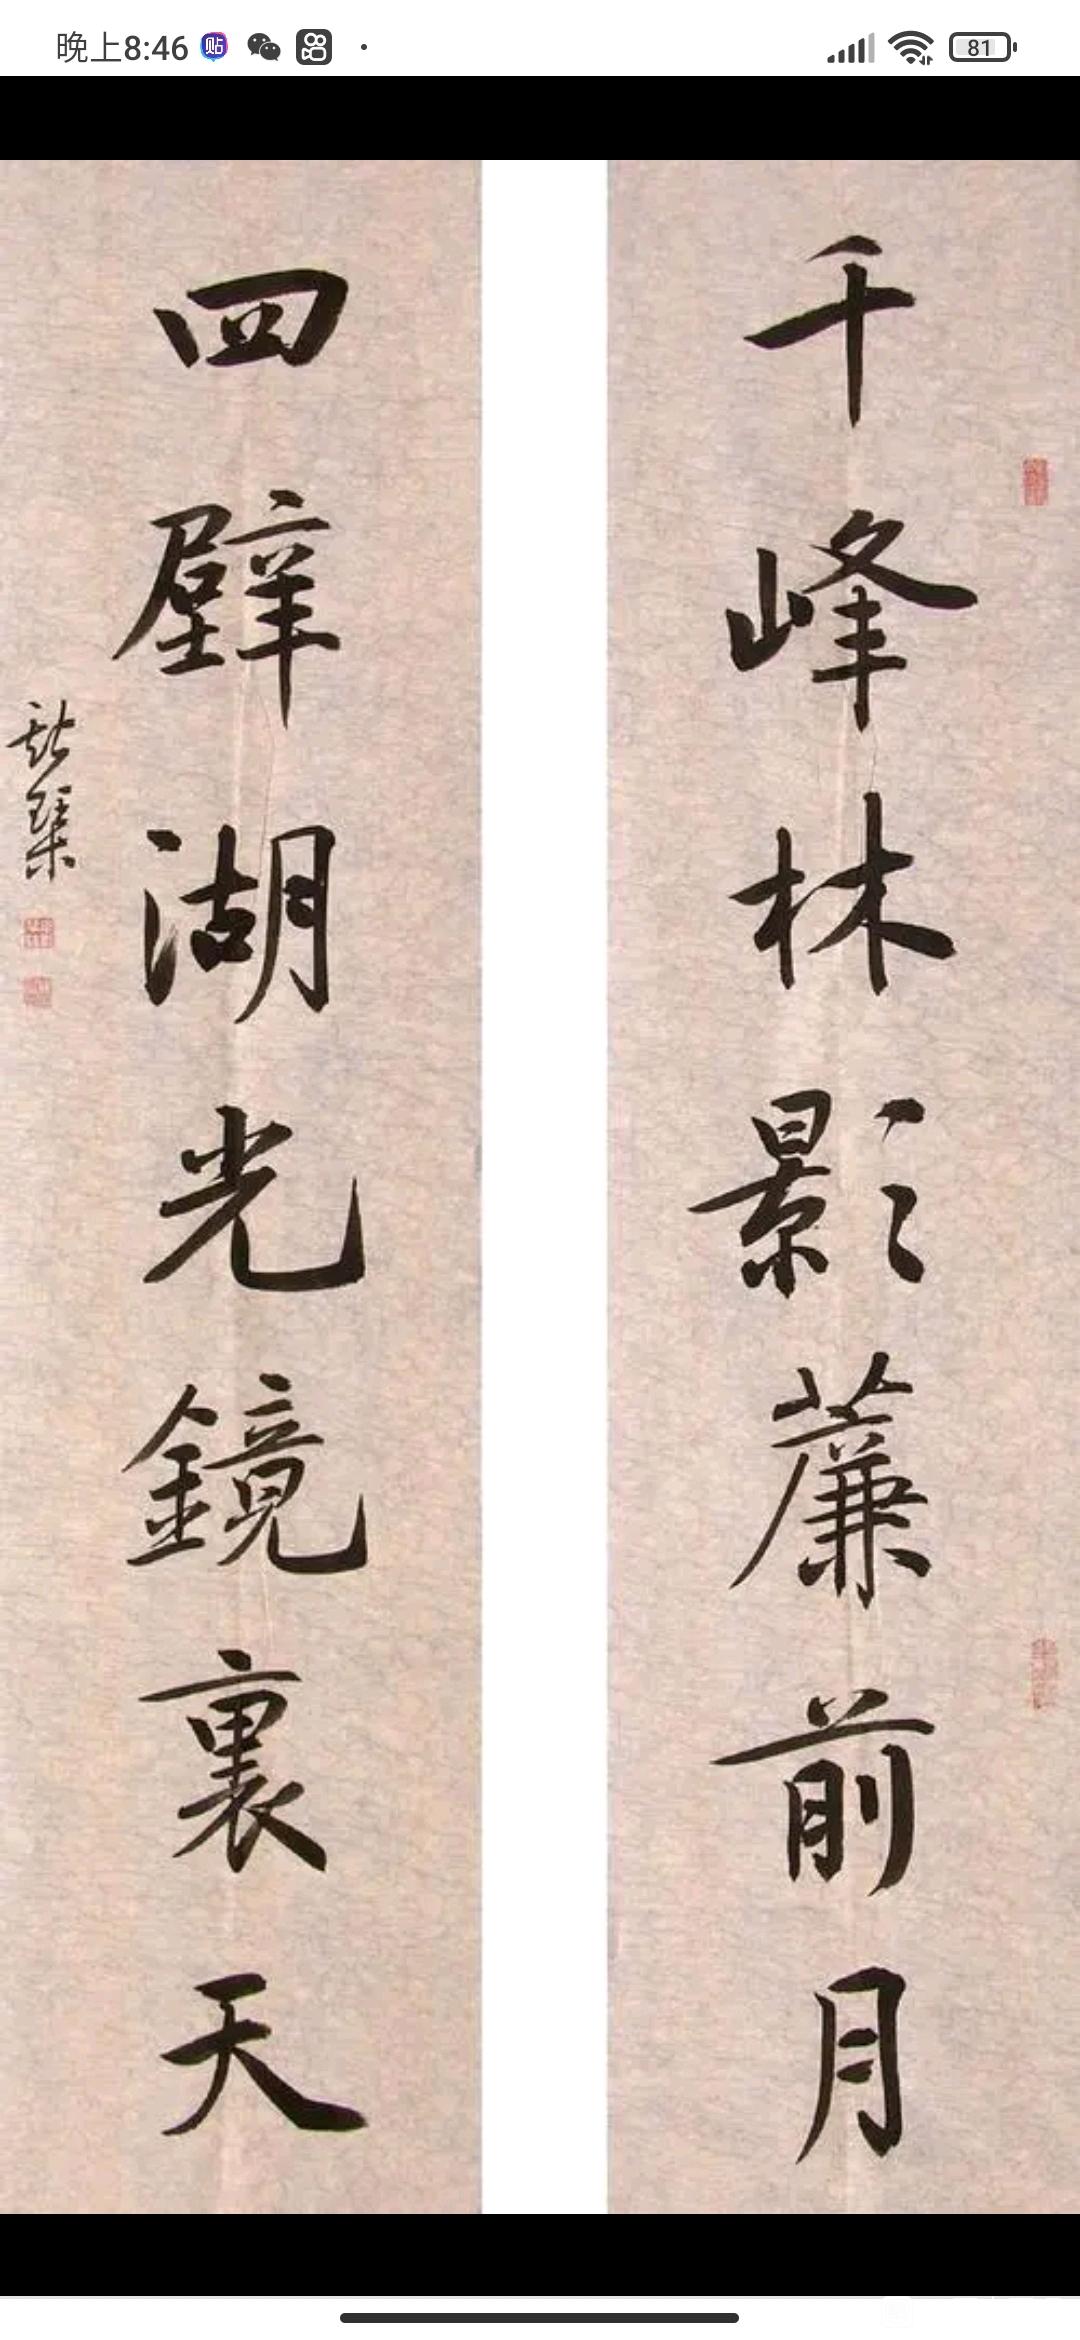 晚上8:46
81
千峰林影簾前月
四壁湖光鏡裏天